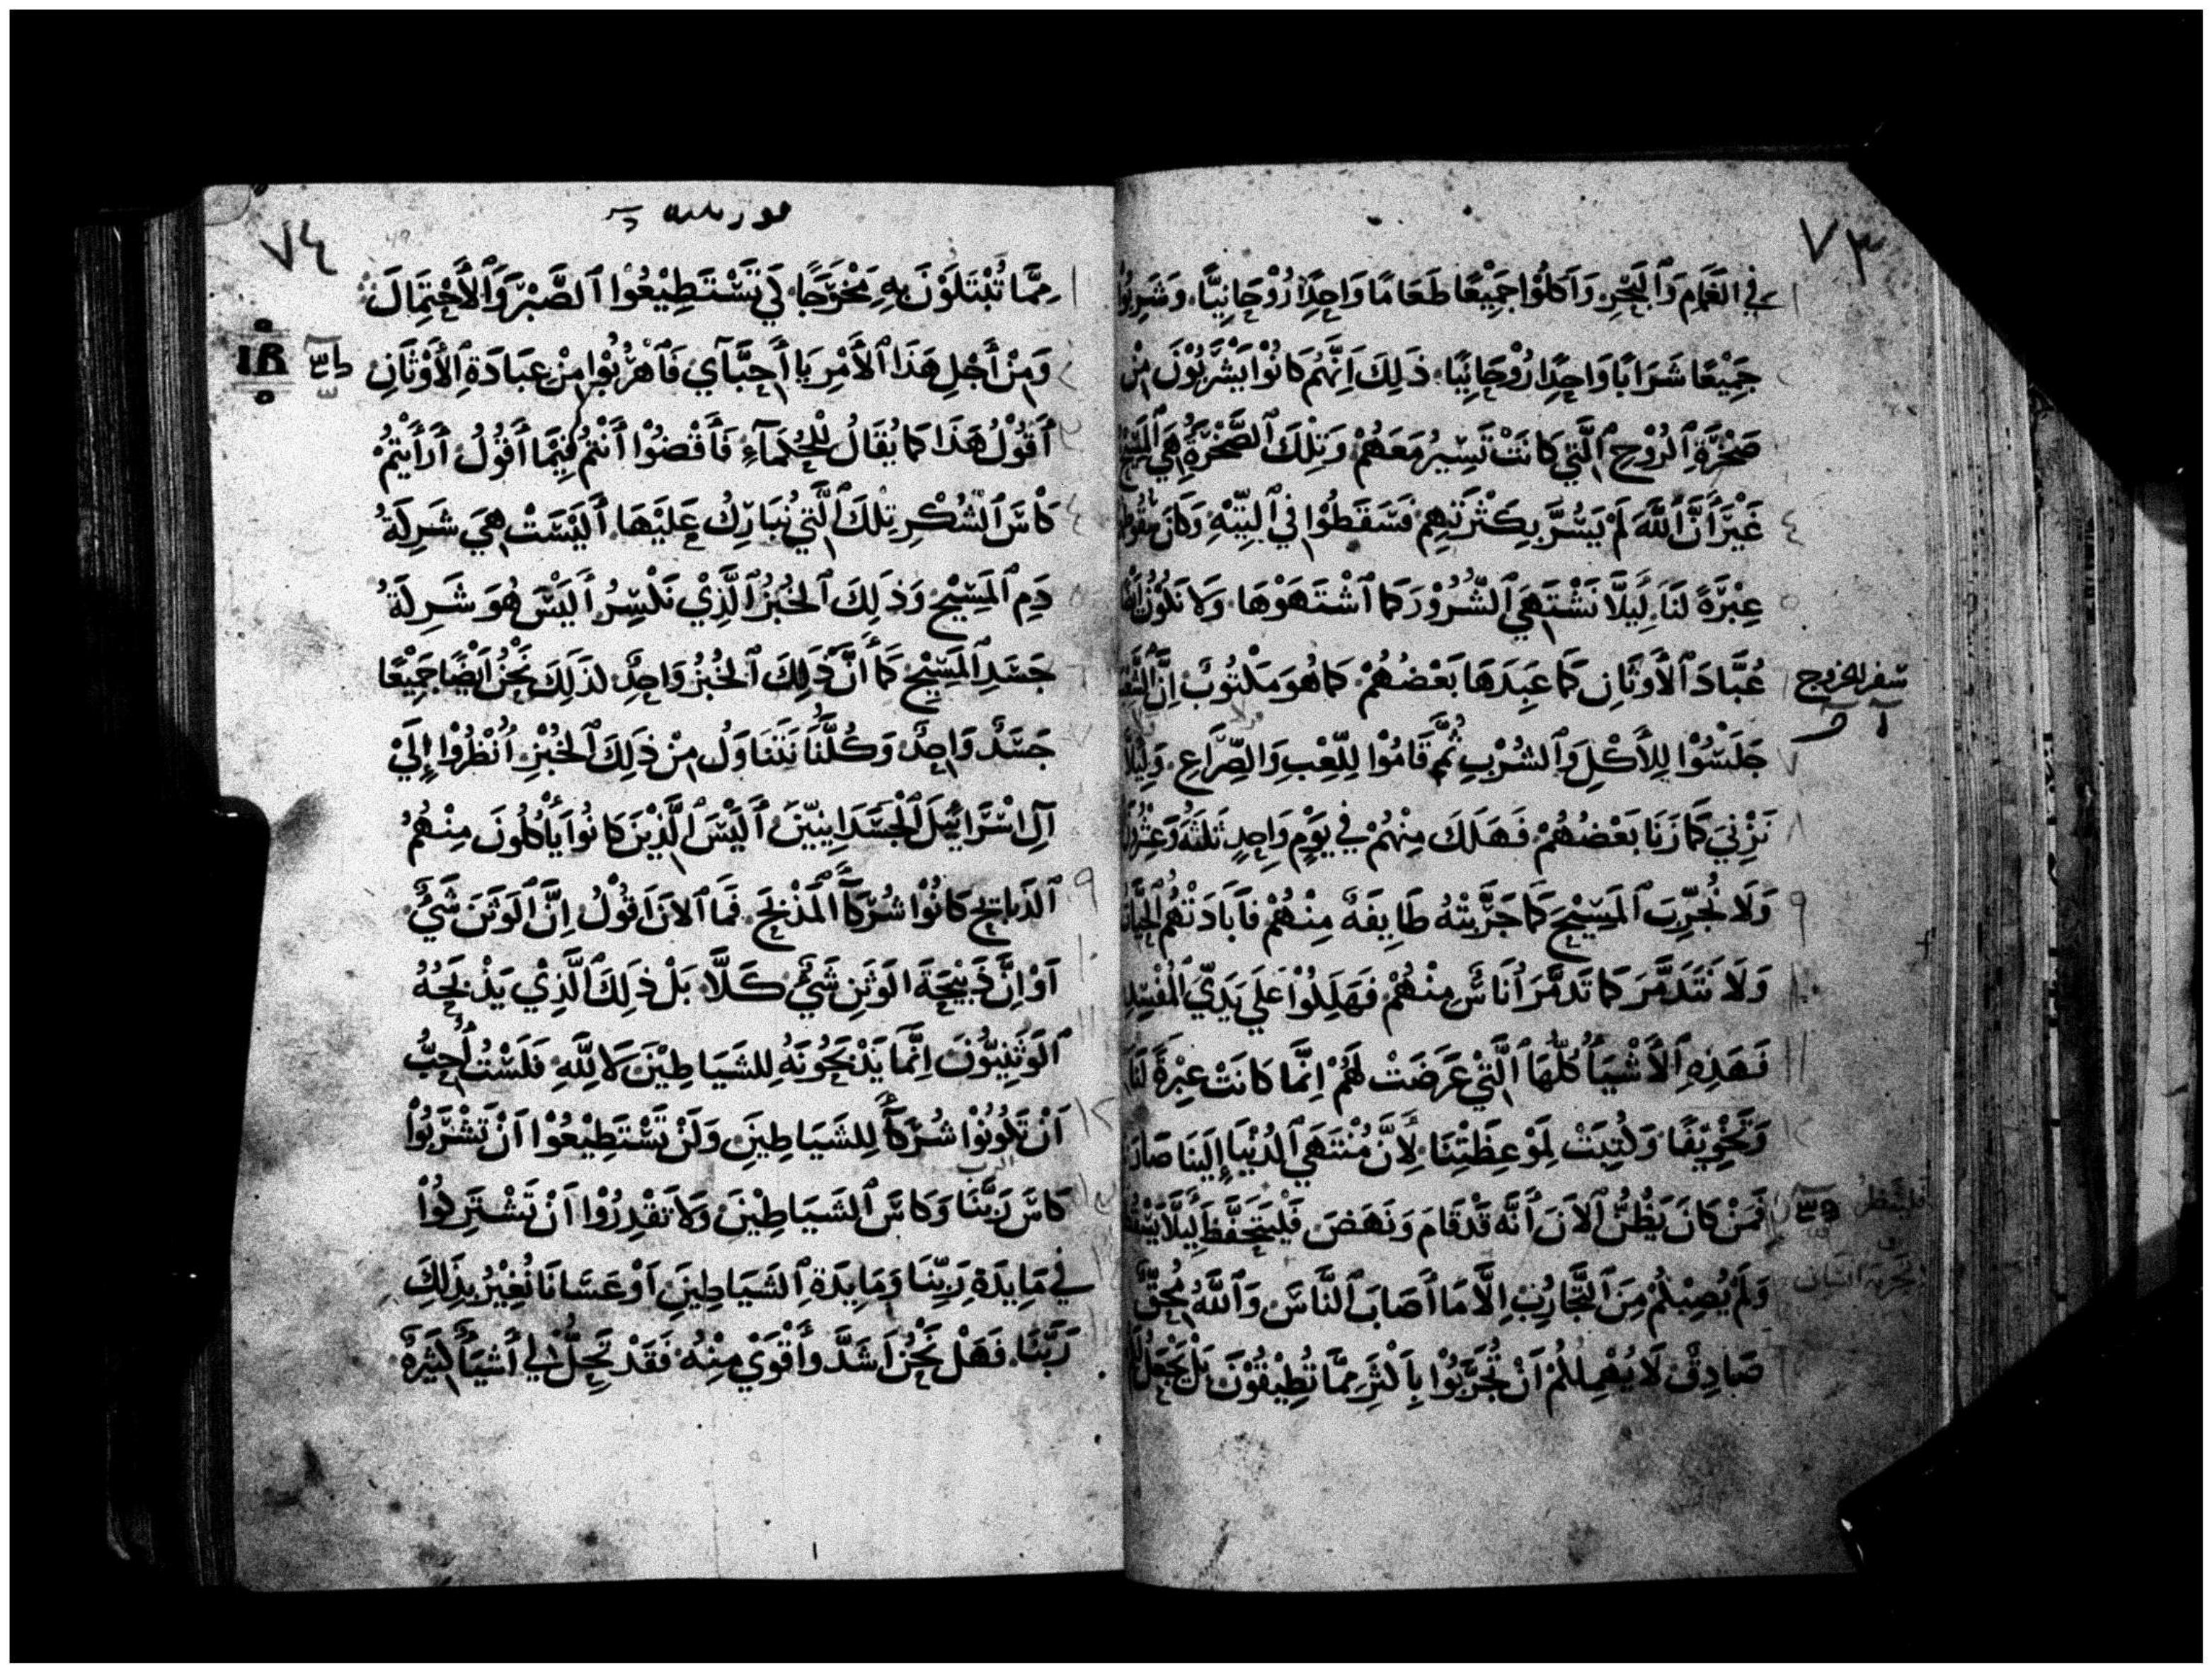 ٧٣
في الغَمَامِ وَٱلبَحْرِ وَأَكَلُوْا جَمِيْعًا طَعَامًا وَاحِدًا رُوْحَانِيًّا. وَشَرِبُوْا
جَمِيْعًا شَرَابًا وَاحِدًا رُوْحَانِيًا. ذَلِكَ اِنَّهُم كَانُوْا يَشْرَبُوْنَ مِنْ
صَخْرَةِ ٱلرُوْحِ ٱلَّتِي كَانَتْ تَسِيْرُ مَعَهُمْ وَتِلْكَ ٱلصَّخْرَةُ هِيَ ٱلمَسِيْحُ
غَيْرَ أَنَّ ٱللَّهَ لَمْ يَسُرَّ بِكَثْرَتِهِم فَسَقَطُوْا فِي ٱلبَرِّيَّةِ وَكَانَ
عِبْرَةً لَنَا. لِيَلَّا نَشْتَهِيَ ٱلشُّرُوْرَ كَمَا ٱشْتَهَوْهَا. وَلَا نَكُوْنُ
عُبَّادَ ٱلأَوثَانِ كَمَا عَبَدَهَا بَعْضُهُمْ. كَمَا هُوَ مَكْتُوْبٌ إِنَّ
سفر الخروج
جَلَسُوْا لِلأَكْلِ وَٱلشُرْبِ ثُمَّ قَامُوْا لِلَّعْبِ وَالصِّرَاعِ. وَلِيَلَّا
نَزْنِيَ كَمَا زَنَا بَعْضُهُمْ فَهَلَكَ مِنْهُمْ فِي يَوْمٍ وَاحِدٍ ثَلثَةٌ وَعِشْرُوْنَ
وَلَا نُجَرِّبَ ٱلمَسِيْحَ كَمَا جَرَّبَتْهُ طَايِفَةٌ مِنْهُمْ فَأَبَادَتْهُم
وَلَا نَتَذَمَّرَ كَمَا تَذَمَّرَ أُنَاسٌ مِنْهُمْ فَهَلِكُوْا عَلَي يَدَيِّ المُفْسِدِ
فَهَذِهِ ٱلأَشْيَأُ كُلُّهَا ٱلَّتِيْ عَرَضَتْ لَهُمْ اِنَّمَا كَانَتْ عِبْرَةً لَنَا
وَتَخْوِيْفًا وَكُتِبَتْ لِمَوْعِظَتِنَا. لِأَنَّ مُنْتَهَي ٱلدُنْيَا إِلَيْنَا صَارَ
فَمَنْ كَانَ يَظُنُّ ٱلاَنَ أَنَّه قَدْ قَامَ وَنَهَضَ فَلْيَتَحَفَّظْ لِيَلَّا يَسْقُطَ
وَلَمْ يُصِبْكُمْ مِنَ ٱلتَّجَارُبِ اِلَّا مَا أَصَابَ ٱلنَّاسَ وَٱللَّهُ مُحِقٌّ
صَادِقٌ لَا يُهْمِلُكُمْ اَنْ تُجَرَّبُوْا بِأَكْثَرَ مِمَّا تُطِيْقُوْنَ بَلْ يَجْعَلُ
٧٤
مِمَّا تُبْتَلَوْنَ بِهِ مَخْرَجًا. لِكَي تَسْتَطِيْعُوْا ٱلصَّبْرَ وَٱلأَحْتِمَالَ
وَمِنْ أَجْلِ هَذَا ٱلأَمْرِ يَا أَحِبَّآيِ فَأَهْرُبُوْا مِنْ عِبَادَةِ ٱلأَوْثَانِ
أَقُوْلُ هَذَا كَمَا يُقَالُ لِلحُكَمَآءِ فَأَقْضُوْا أَنْتُم فِيْمَا أَقُوْلُ أَرَأَيْتُمْ
كَأسَ ٱلشُكْرِ تِلْكَ ٱلَّتِي نُبَارِكُ عَلَيْهَا. أَلَيْسَتْ هِيَ شَرِكَةُ
دَمِ ٱلمَسِيْحِ وَذَلِكَ ٱلخُبْزُ ٱلَّذِيْ نَكْسِرُ أَلَيْسَ هُوَ شَرِكَةُ
جَسَدِ ٱلمَسِيْحِ كَمَا أَنَّ ذَلِكَ ٱلخُبْزُ وَاحِدٌ لذَلِكَ نَحْنُ اَيْضًا جَمِيْعًا
جَسَدٌ وَاحِدٌ. وَكُلُّنَا نَتَنَاوَلُ مِنْ ذَلِكَ ٱلخُبْزِ. اُنْظُرُوْا إِلَيْ
آلِ اسْرَائِيْلَ ٱلْجَسَدَانِيِّيْنَ أَلَيْسَ ٱلَّذِيْنَ كَانُوا يَأكُلُونَ مِنْهُمُ
ٱلذَبَايِحَ كَانُوْا شُرَكَآ ٱلمَذْبَحِ. فَمَا ٱلاَنَ أَقُوْلُ اِنَّ ٱلوَثَنَ شَيْءٌ
اَوْ اِنَّ ذَبِيْحَةَ الوَثَنِ شَيْءٌ كَلَّا. بَلْ ذَلِكَ ٱلَّذِيْ يَذْبَحُهُ
ٱلوَثَنِيُّوْنَ اِنَّمَا يَذْبَحُوْنَهُ لِلشَيَاطِيْنَ لَا لِلَّهِ فَلَسْتُ أُحِبُّ
اَنْ تَكُوْنُوْا شُرَكَآ لِلشَيَاطِيْنَ. وَلَنْ تَسْتَطِيْعُوْا اَنْ تَشْرَبُوْا
كَاسَ رَبِّنَا وَكَاسَ ٱلشَيَاطِيْنَ وَلَا تَقْدِرُوْا اَنْ تَشْتَرِكُوْا
فِي مَايِدَةِ رَبِّنَا وَمَايِدَةِ ٱلشَيَاطِيْنَ اَوْ عَسَانَا نُغِيْرُ بِذَلِكَ
رَبَّنَا. فَهَلْ نَحْنُ اَشَدَّ وأَقْوَيْ مِنْهُ. فَقَدْ تَحِلُّ لِي أَشْيَأُ كَثِيْرَةٌ